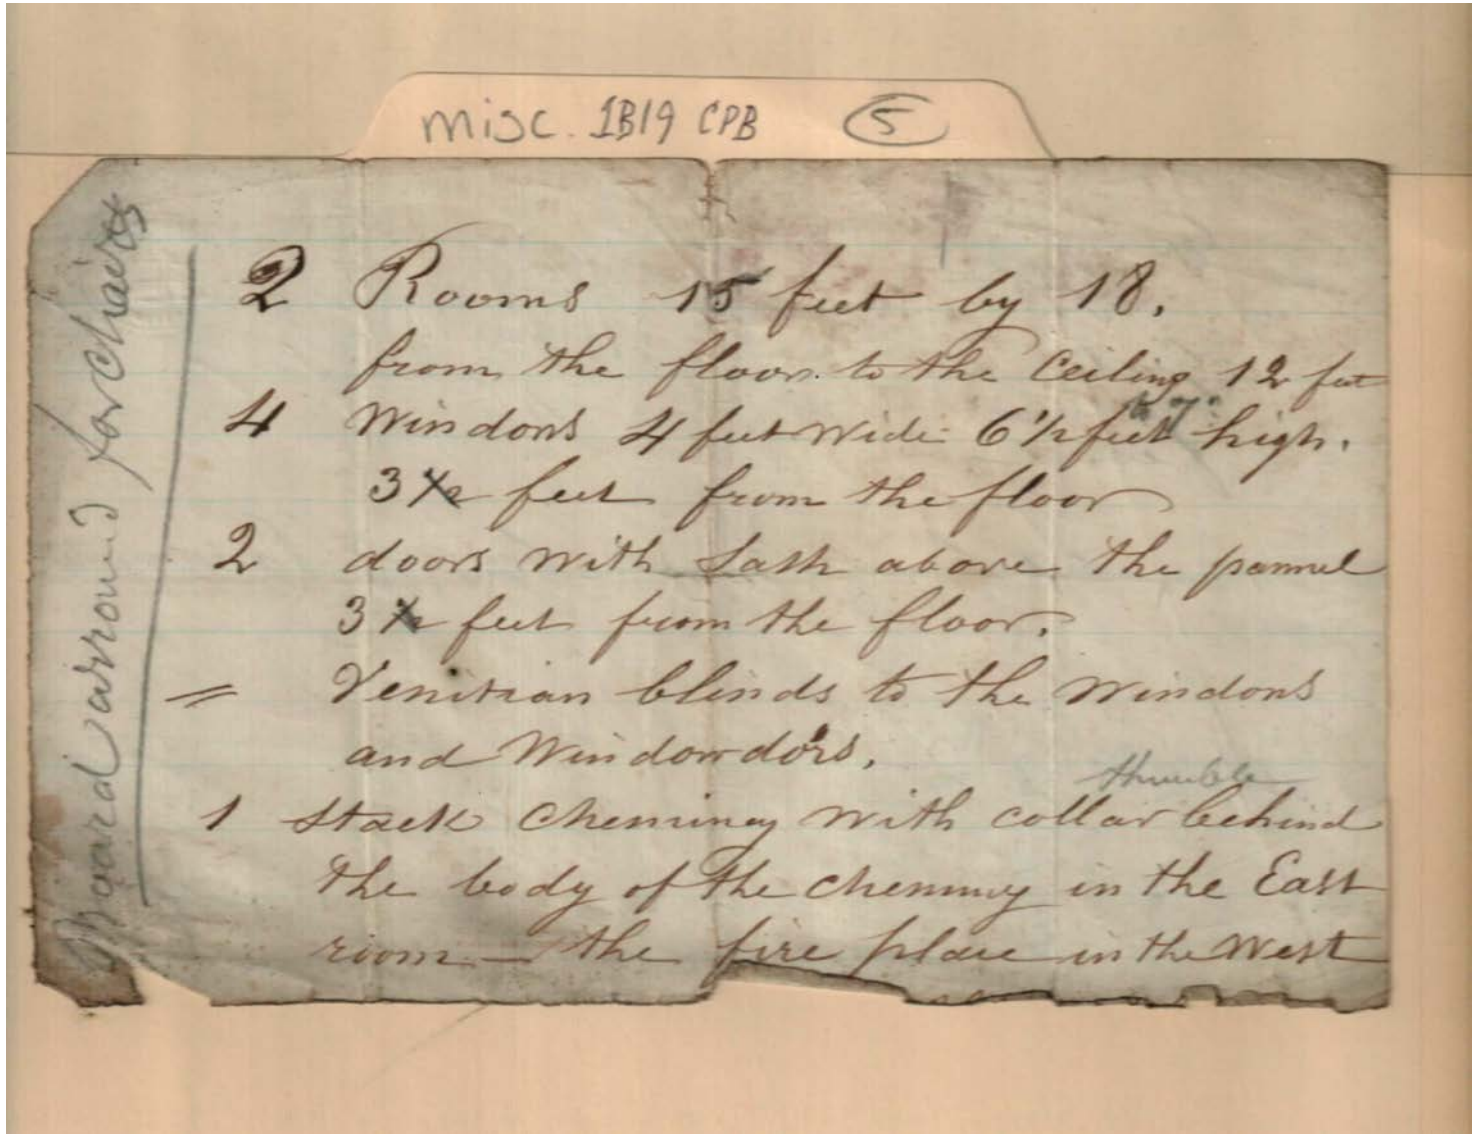 misc. 1B19 CPB 5
2 Rooms 15 feet by 18.
from the floor to the Ceiling 12 feet
4 Windows 4 feet Wide 6 1/2 feet high.
3 1/2 feet from the floor
2 doors with Sash above the pannel
3 1/2 feet from the floor.
= Venitian blinds to the Windows
and Window doors.
thimble
1 Stack Cheminey with collar behind
the body of the Cheminey in the East
room — the fire place in the West
Board arround for chairs